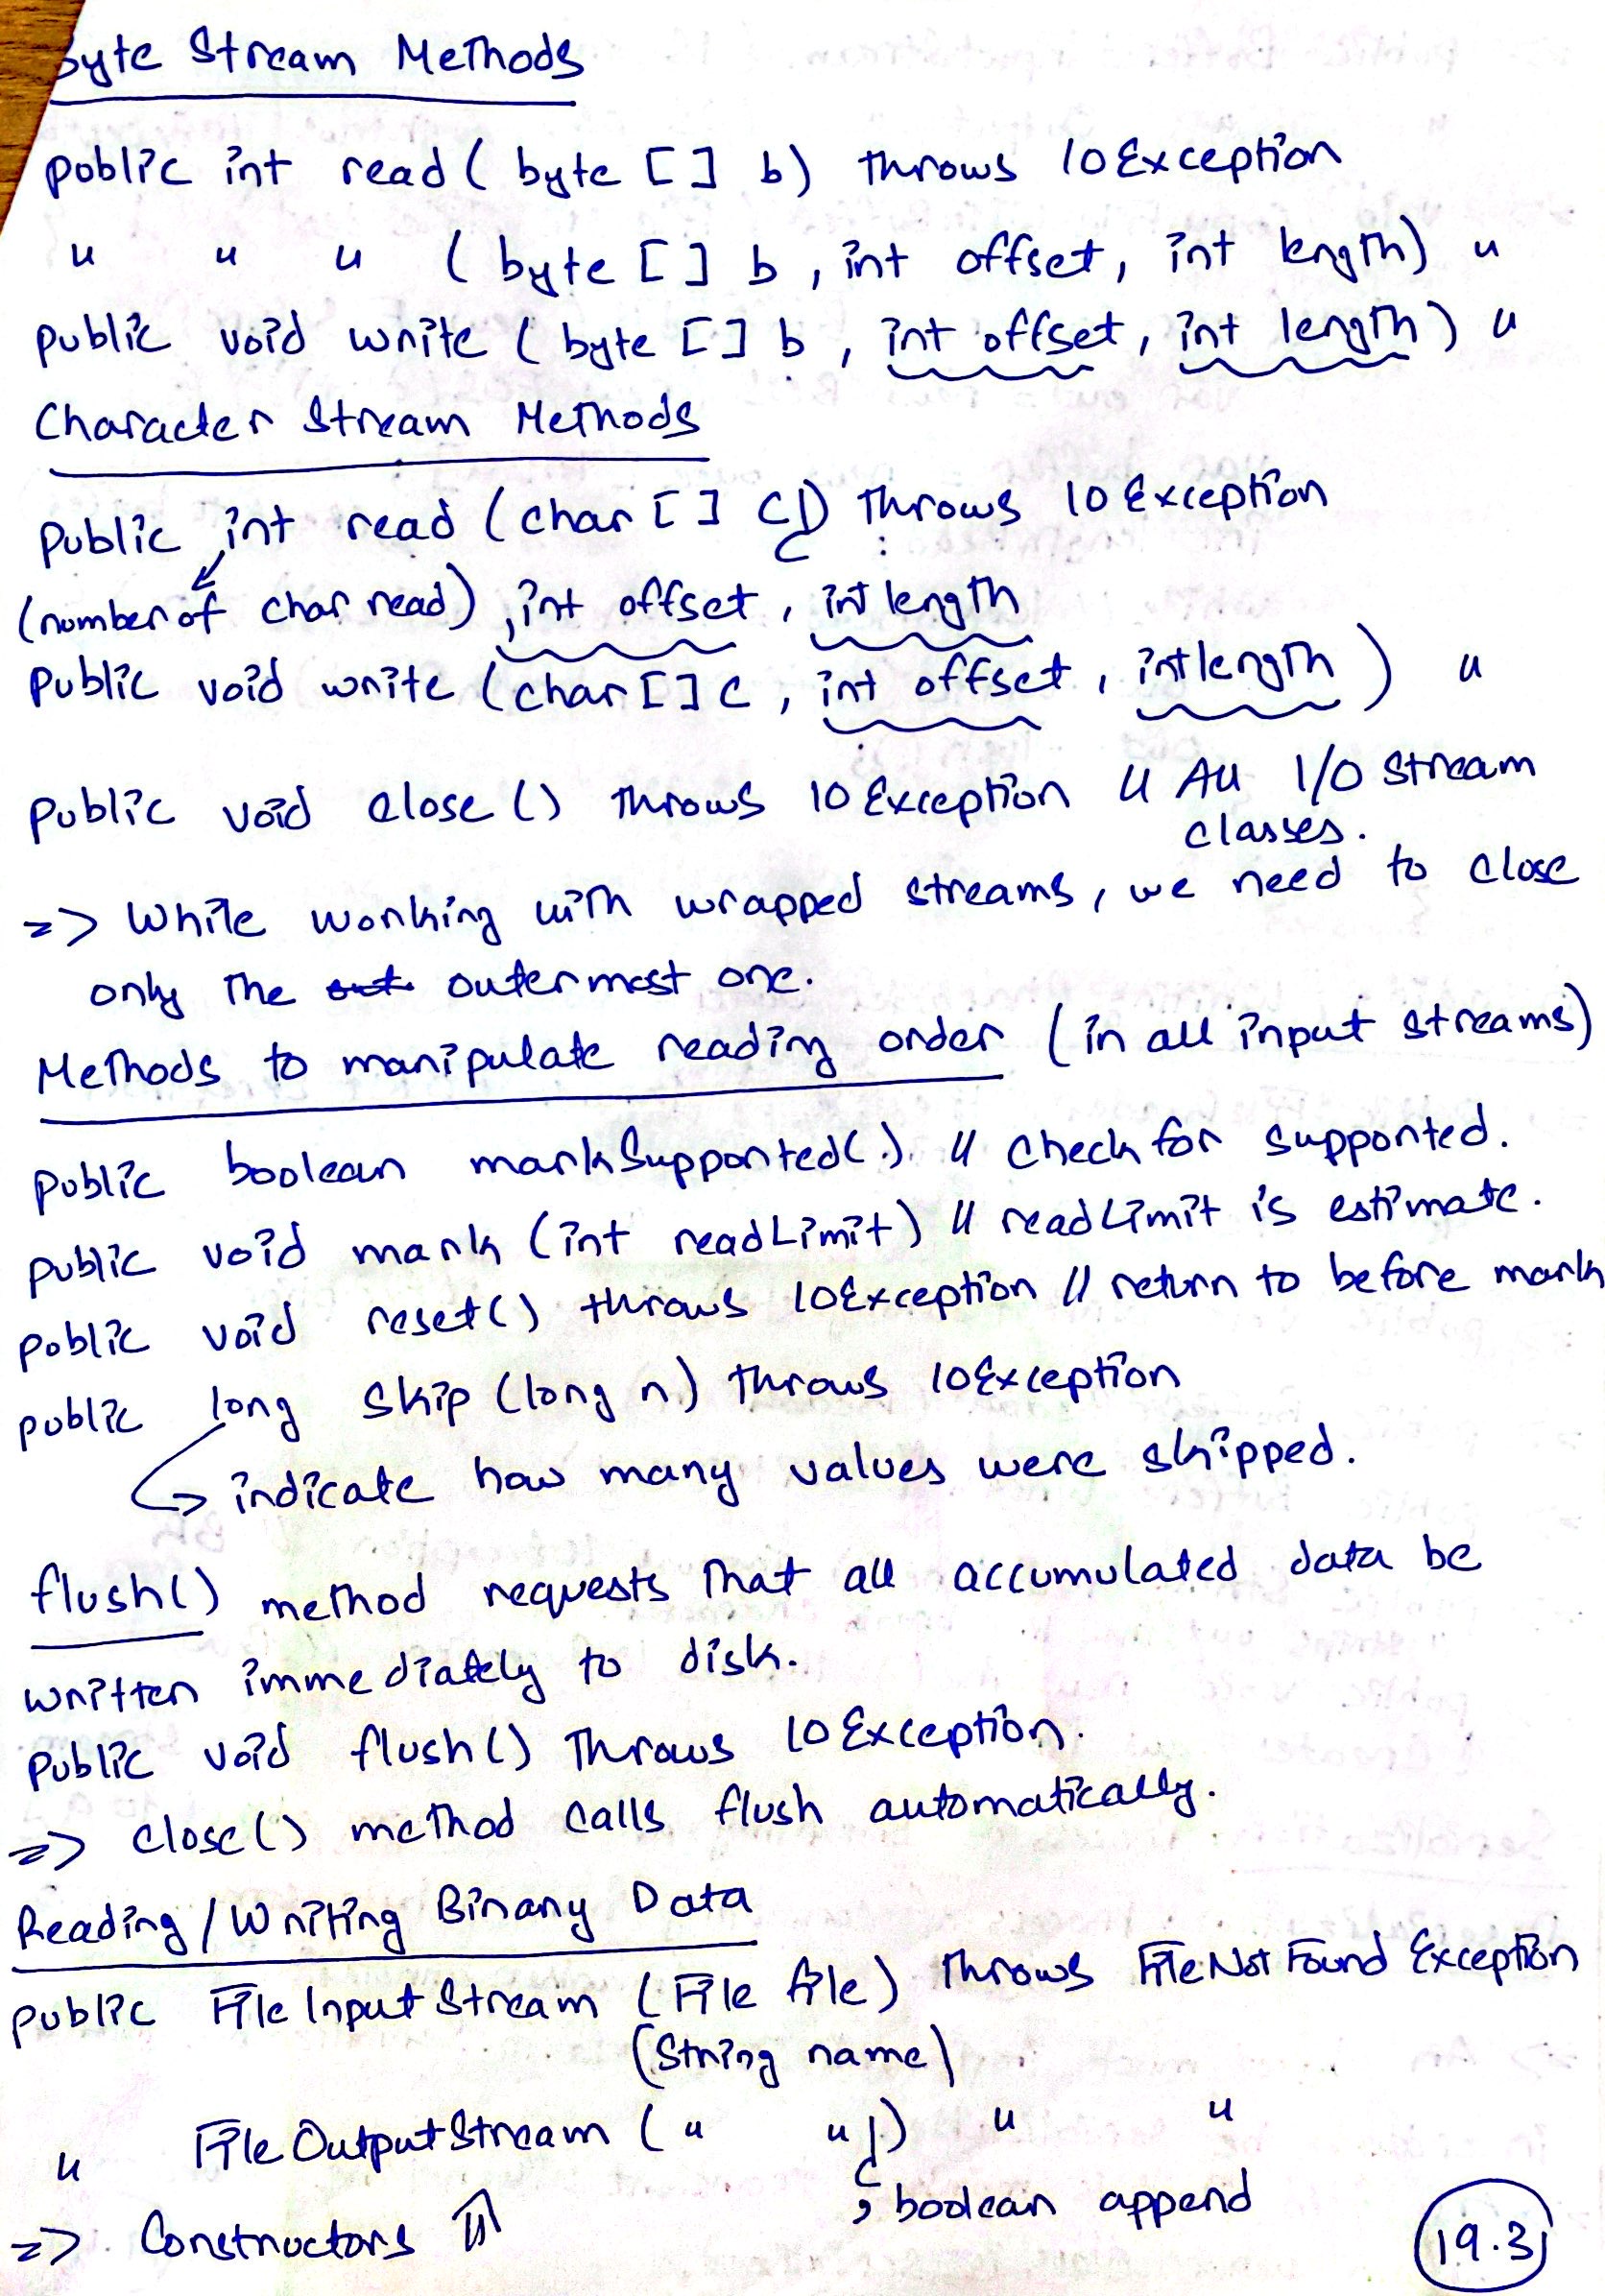 Byte Stream Methods
public int read ( byte [ ] b) throws IOException
" " " ( byte [ ] b , int offset, int length) "
public void write ( byte [ ] b , int offset, int length ) "
Character Stream Methods
public int read ( char [ ] c ) throws IOException
(number of char read) , int offset , int length
public void write ( char [ ] c , int offset , int length ) "
public void close () throws IOException // All I/O Stream
classes.
=> While working with wrapped streams, we need to close
only the out outermost one.
Methods to manipulate reading order ( in all input streams)
public boolean markSupported(). // check for supported.
public void mark (int readLimit) // readLimit is estimate.
public void reset() throws IOException // return to before mark
public long skip (long n) throws IOException
indicate how many values were skipped.
flush() method requests that all accumulated data be
written immediately to disk.
public void flush() throws IOException.
=> close() method calls flush automatically.
Reading / Writing Binary Data
public FileInputStream (File file) throws FileNotFoundException
(String name)
" FileOutputStream ( " " ) " "
, boolean append
=> Constructors
19.3